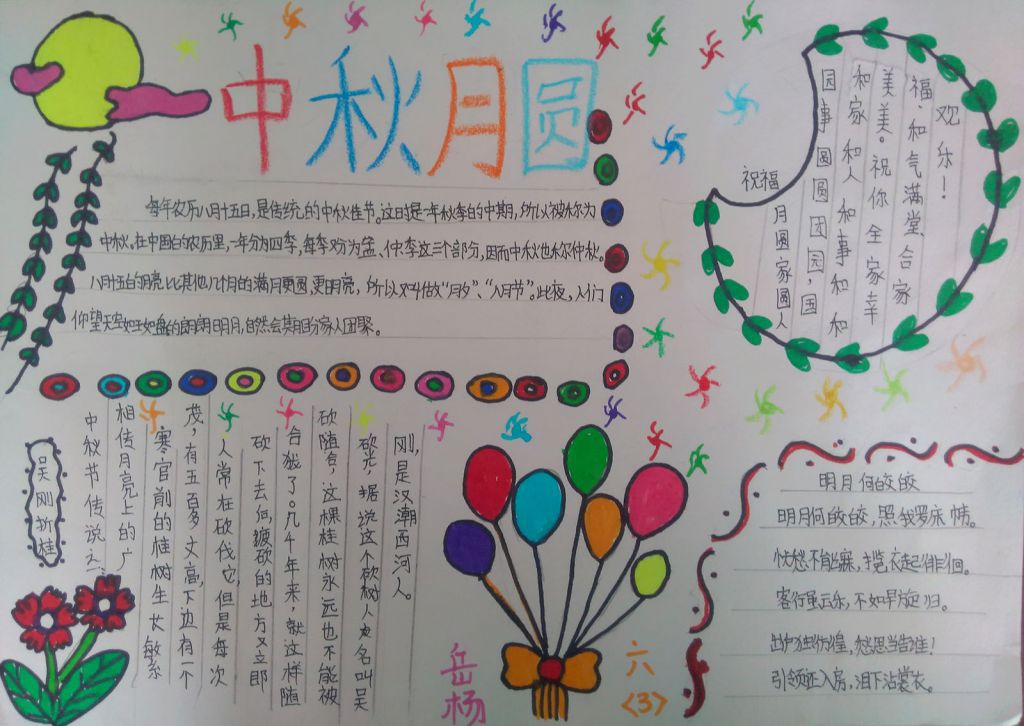 中秋月圆
每年农历八月十五日,是传统的中秋佳节。这时是一年秋季的中期,所以被称为
中秋。在中国的农历里,一年分为四季,每季又分为孟、仲、季三个部分,因而中秋也称仲秋。
八月十五的月亮比其他几个月的满月更圆,更明亮,所以又叫做“月夕”、“八月节”。此夜,人们
仰望天空如玉如盘的朗朗明月,自然会期盼家人团聚。
祝福
月圆家圆人
园事圆圆团团园,国
和家和人和事和和
美美。祝你全家幸
福、和气满堂合家
欢乐!
吴刚折桂
中秋节传说之:
相传月亮上的广
寒宫前的桂树生长繁
茂,有五百多丈高,下边有一个
人常在砍伐它,但是每次
砍下去后,被砍的地方又立即
合拢了。几千年来,就这样随
砍随合,这棵桂树永远也不能被
砍光。据说这个砍树人名叫吴
刚,是汉潮西河人。
岳杨
六<3>
明月何皎皎
明月何皎皎,照我罗床帏。
忧愁不能寐,揽衣起徘徊。
客行虽云乐,不如早旋归。
出户独彷徨,愁思当告谁!
引领还入房,泪下沾裳衣。